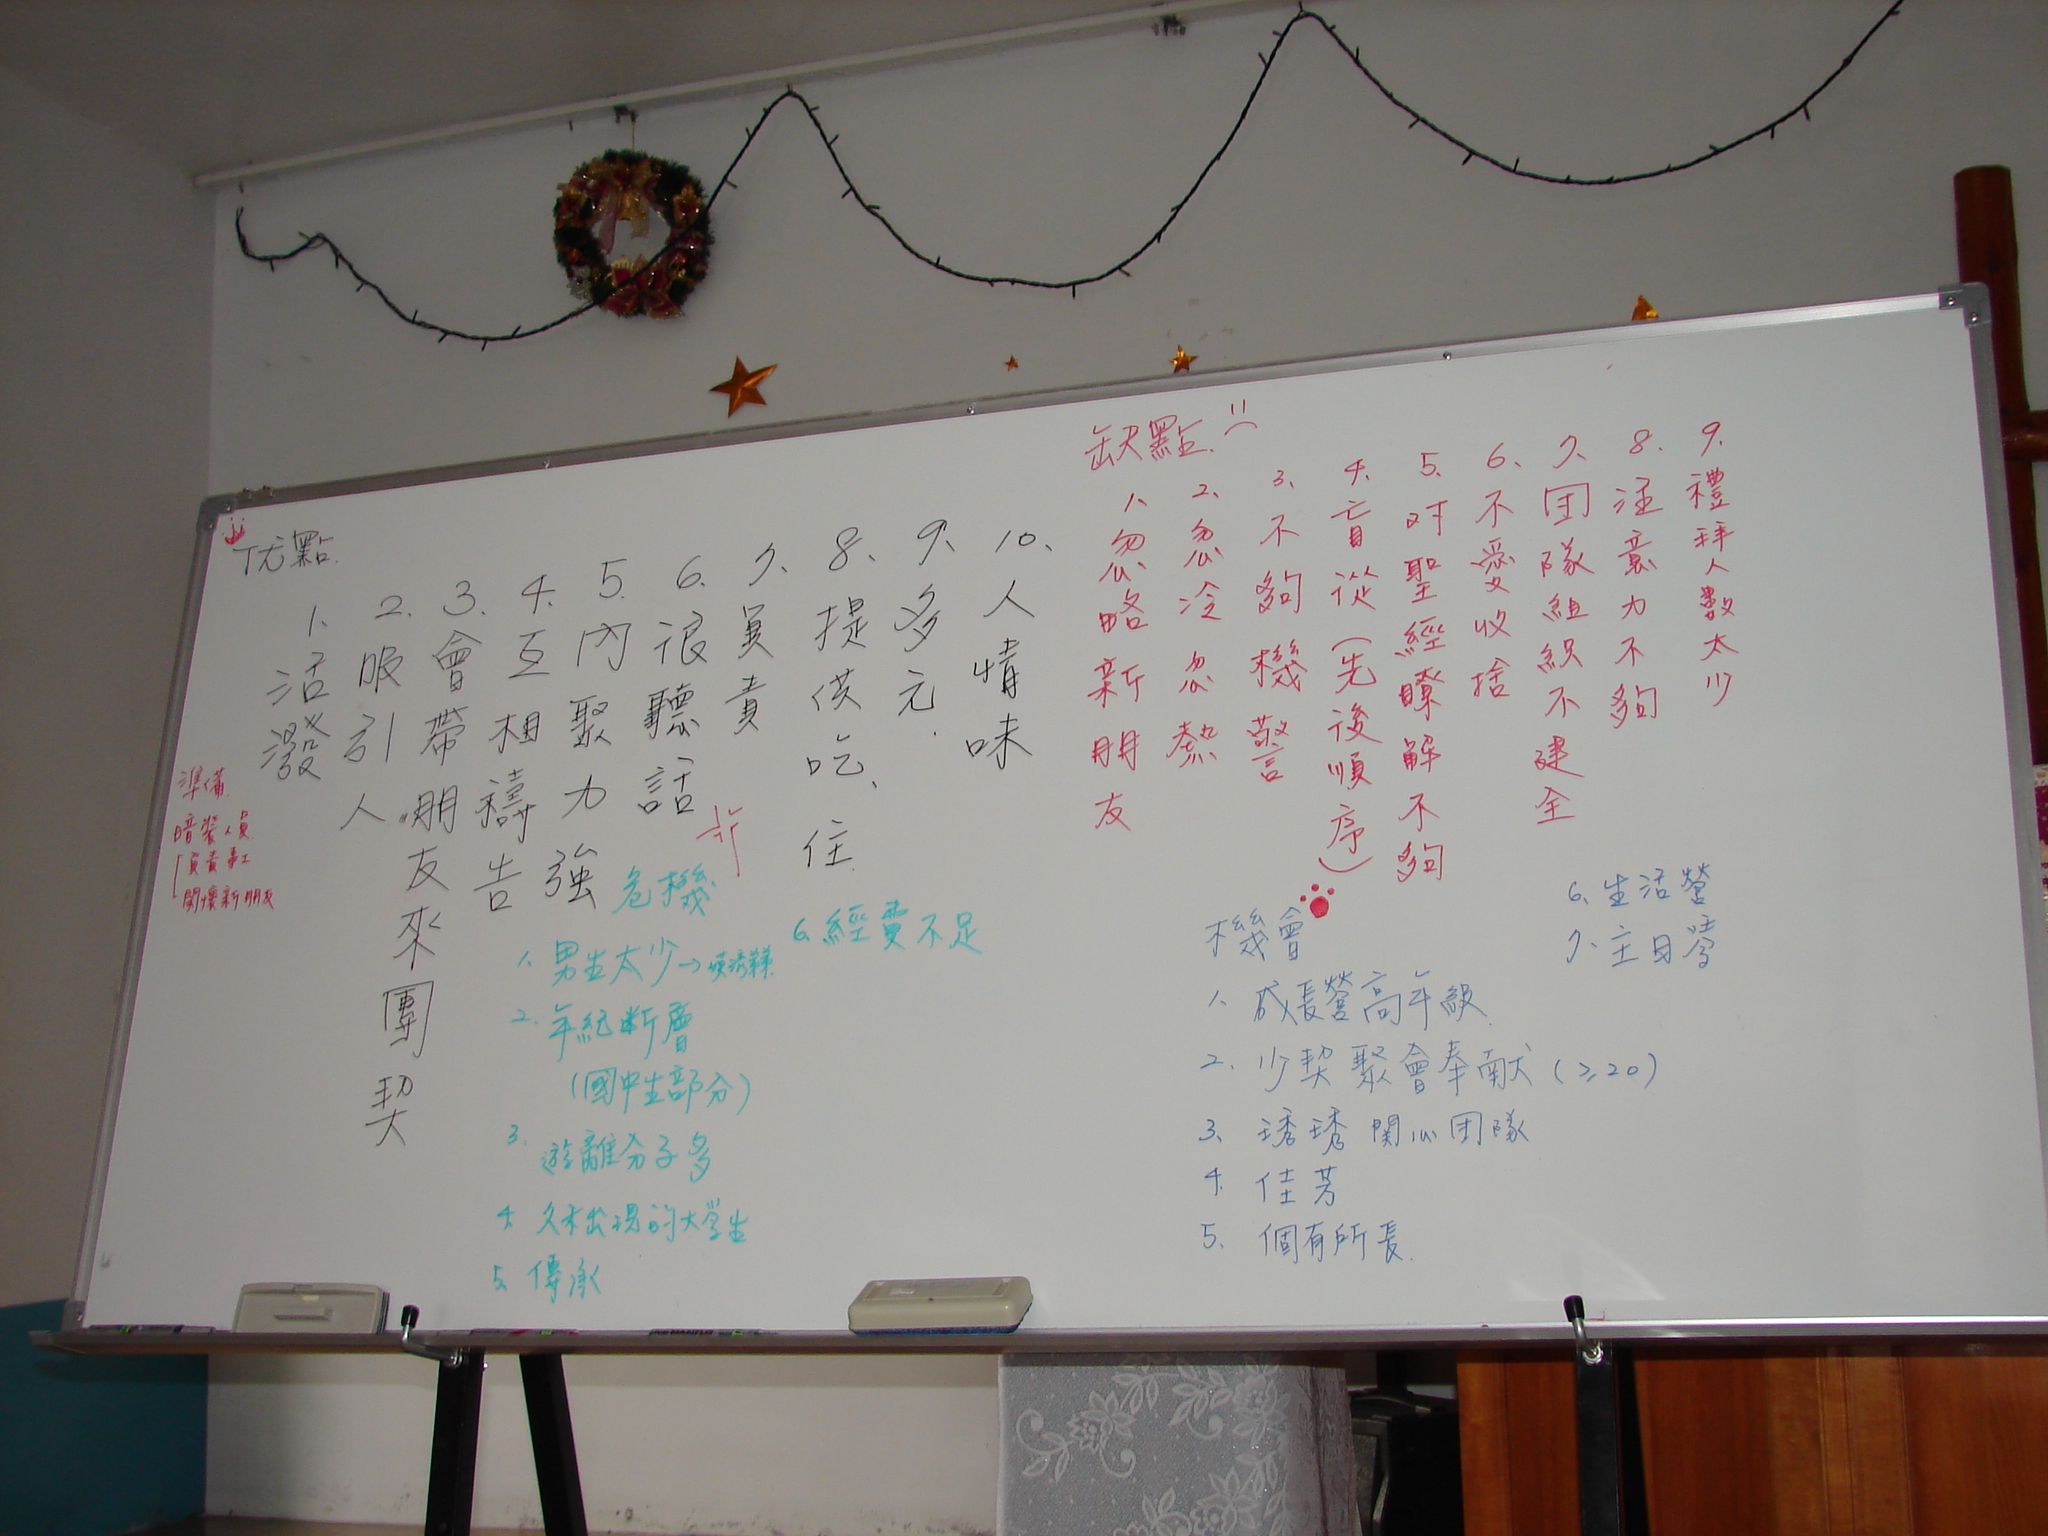 优點
1. 活潑
2. 服引人
3. 會帶朋友來團契
4. 互相禱告
5. 內聚力強
6. 很聽話
7. 負責
8. 提供吃、住
9. 多元
10. 人情味
缺點
1. 忽略新朋友
2. 忽冷忽熱
3. 不夠機警
4. 盲從(先後順序)
5. 對聖經瞭解不夠
6. 不愛收捨
7. 团隊組織不建全
8. 注意力不夠
9. 禮拜人數太少
準備
暗桩人員
負責事工
関懷新朋友
危機
1. 男生太少→
2. 年紀断層
(國中生部分)
3. 遊離分子多
4. 久未出現的大学生
5. 傳承
6. 經費不足
機會
1. 成長營高年級
2. 少契聚會奉献(≥20)
3. 琇琇関心团隊
4. 佳芳
5. 個有所長
6. 生活營
7. 主日學